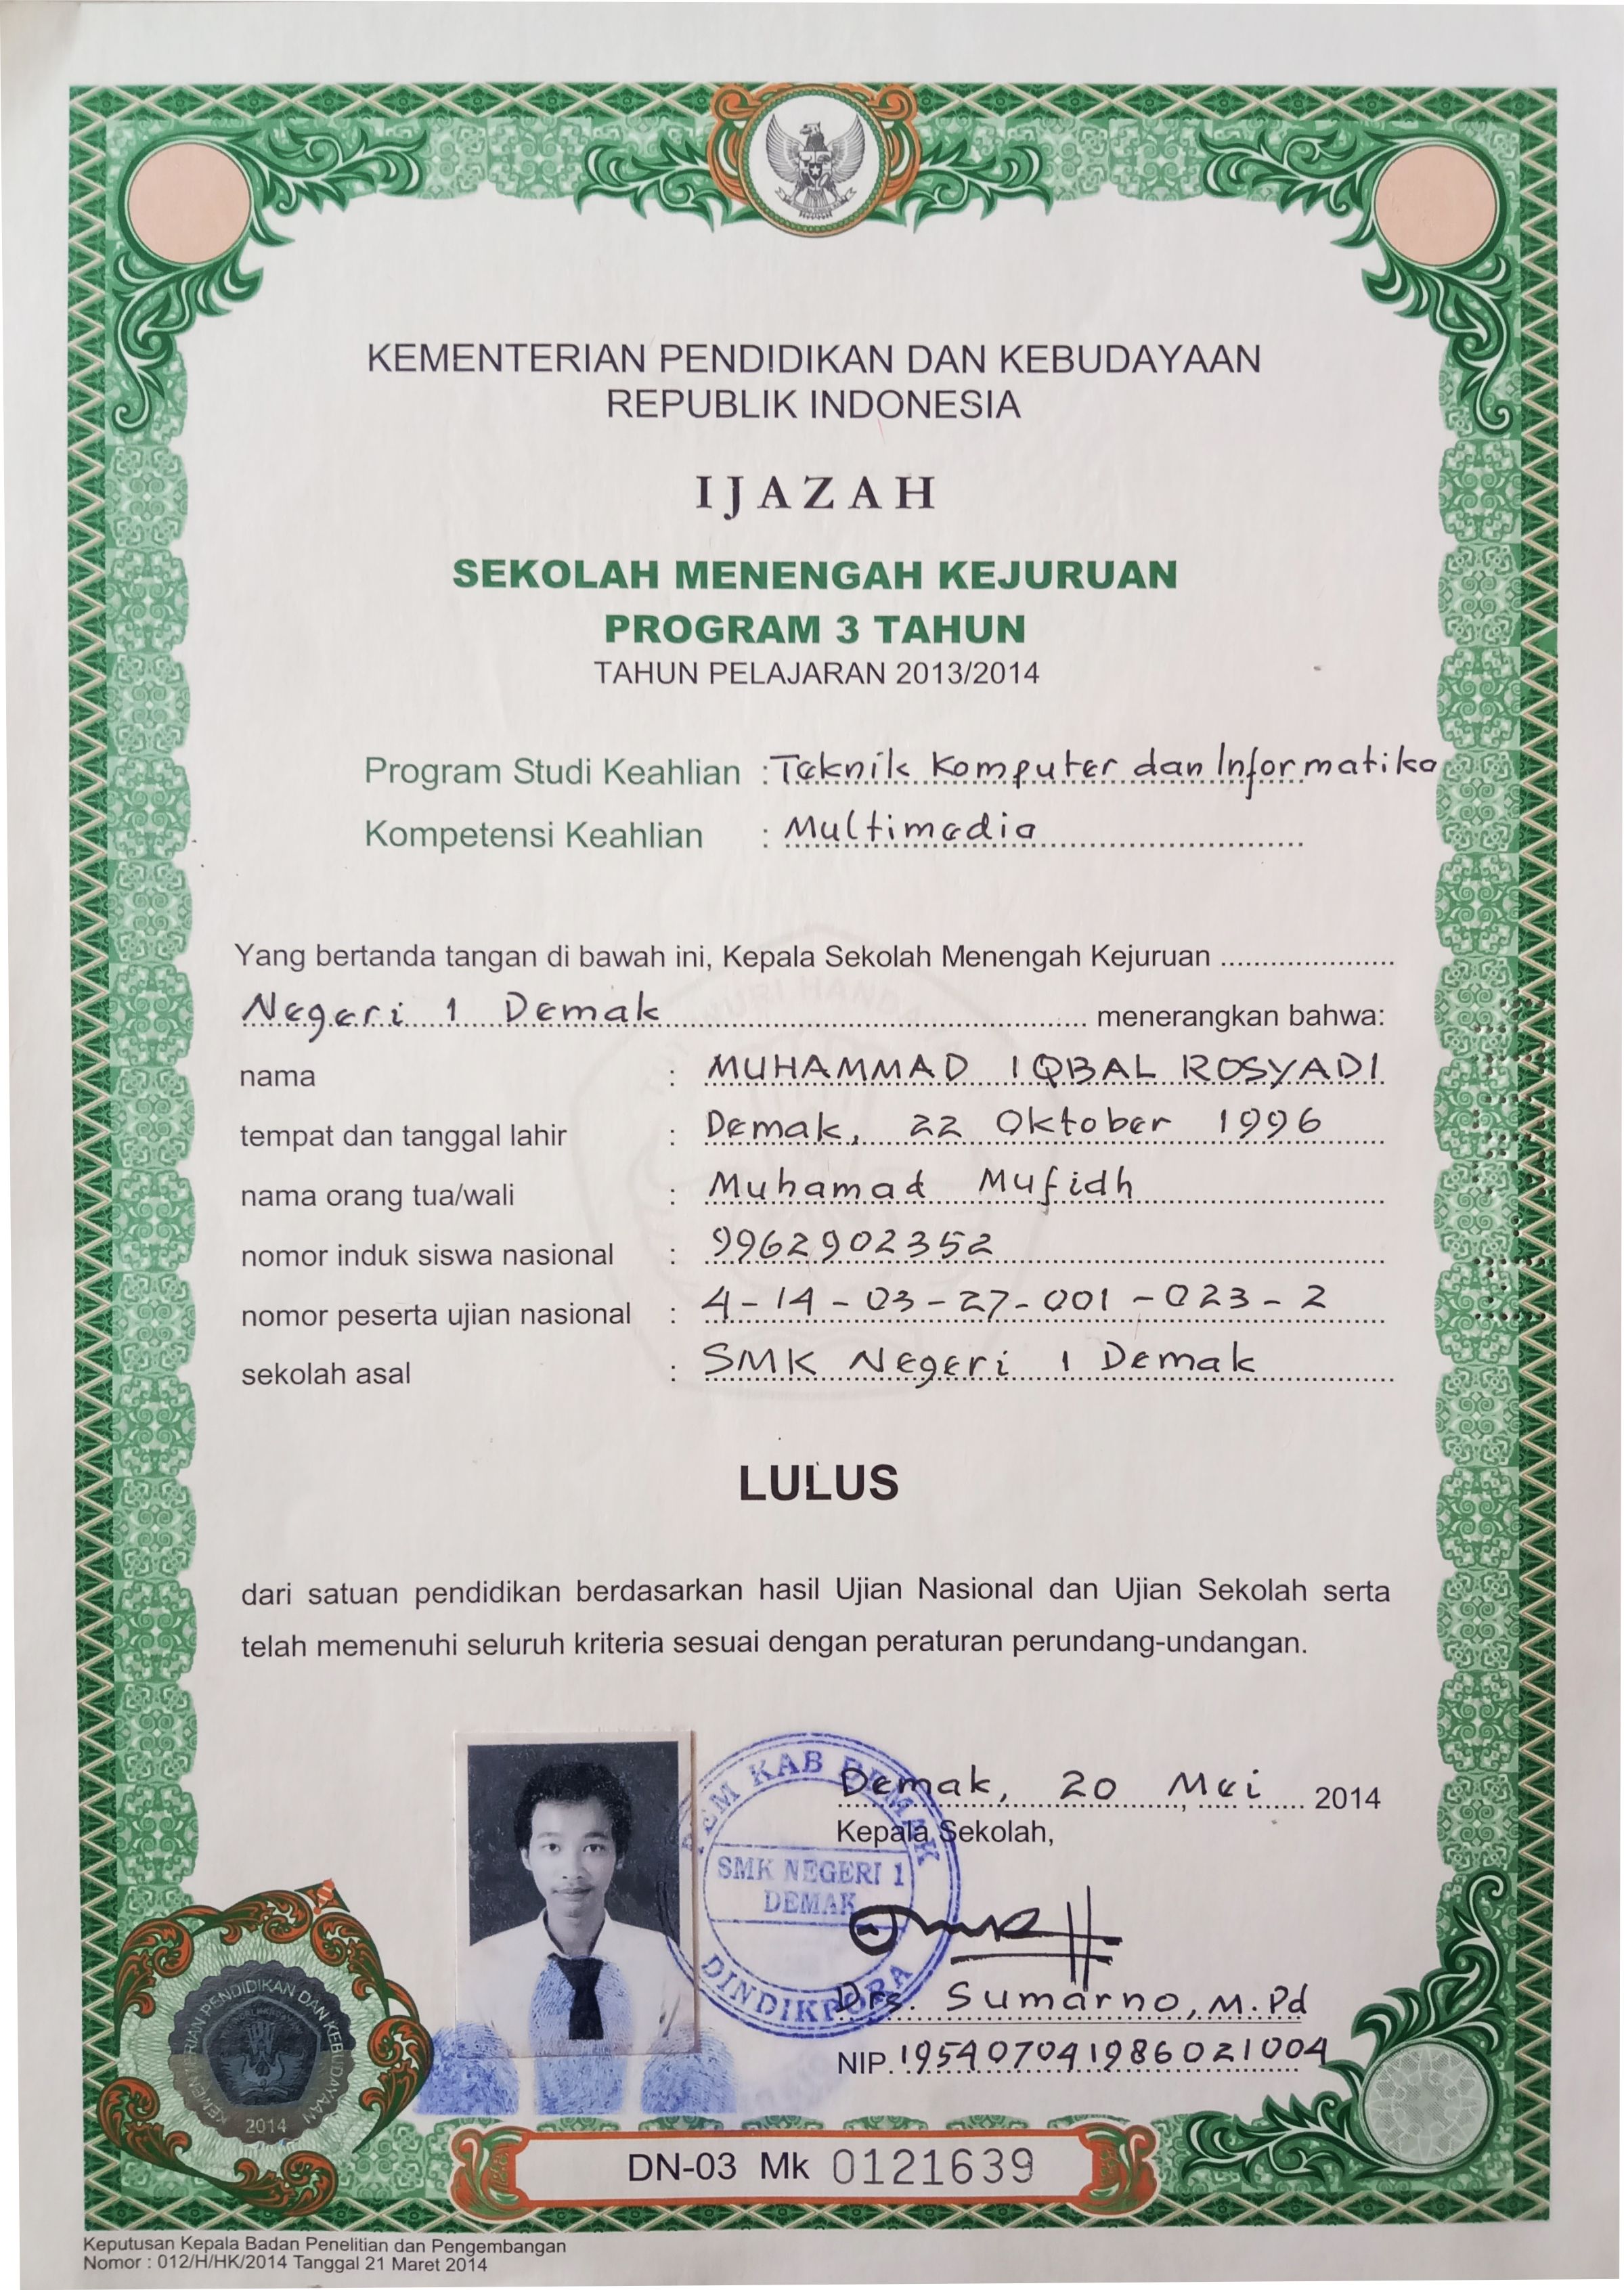 KEMENTERIAN PENDIDIKAN DAN KEBUDAYAAN
REPUBLIK INDONESIA
IJAZAH
SEKOLAH MENENGAH KEJURUAN
PROGRAM 3 TAHUN
TAHUN PELAJARAN 2013/2014
Program Studi Keahlian : Teknik Komputer dan Informatika
Kompetensi Keahlian : Multimedia
Yang bertanda tangan di bawah ini, Kepala Sekolah Menengah Kejuruan
Negeri 1 Demak menerangkan bahwa:
nama : MUHAMMAD IQBAL ROSYADI
tempat dan tanggal lahir : Demak, 22 Oktober 1996
nama orang tua/wali : Muhamad Mufidh
nomor induk siswa nasional : 9962902352
nomor peserta ujian nasional : 4-14-03-27-001-023-2
sekolah asal : SMK Negeri 1 Demak
LULUS
dari satuan pendidikan berdasarkan hasil Ujian Nasional dan Ujian Sekolah serta
telah memenuhi seluruh kriteria sesuai dengan peraturan perundang-undangan.
PEM KAB DEMAK
SMK NEGERI 1
DEMAK
DINDIKPORA
Demak, 20 Mei 2014
Kepala Sekolah,
Drs. Sumarno, M.Pd
NIP. 195407041986021004
KEMENTERIAN PENDIDIKAN DAN KEBUDAYAAN
2014
DN-03 Mk 0121639
Keputusan Kepala Badan Penelitian dan Pengembangan
Nomor : 012/H/HK/2014 Tanggal 21 Maret 2014